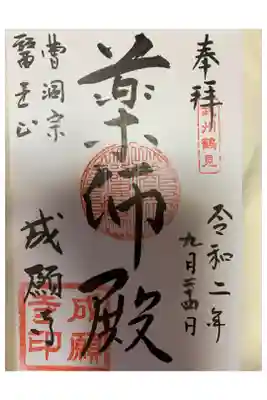 奉拝
武州鶴見
令和二年
九月廿四日
薬師殿
曹洞宗
醫王山
成願寺
成願寺印